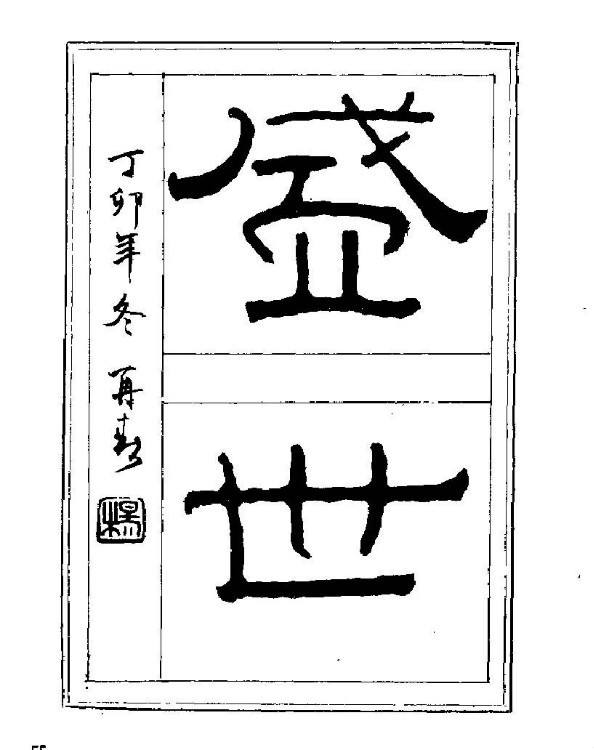 盛世
丁卯年冬 再春
楊
55